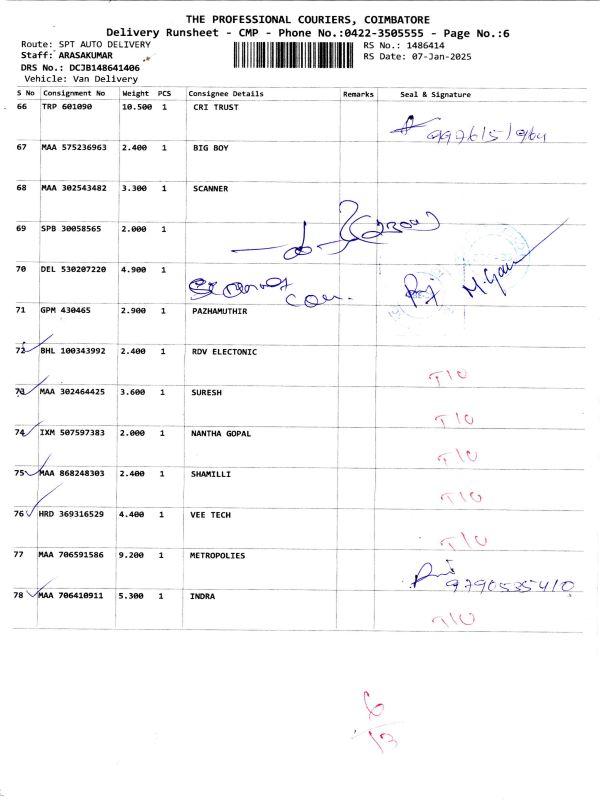 THE PROFESSIONAL COURIERS, COIMBATORE
Delivery Runsheet - CMP - Phone No.:0422-3505555 - Page No.:6
Route: SPT AUTO DELIVERY RS No.: 1486414
Staff: ARASAKUMAR RS Date: 07-Jan-2025
DRS No.: DCJB148641406
Vehicle: Van Delivery
S No Consignment No Weight PCS Consignee Details Remarks Seal & Signature
66 TRP 601090 10.500 1 CRI TRUST
67 MAA 575236963 2.400 1 BIG BOY
68 MAA 302543482 3.300 1 SCANNER
69 SPB 30058565 2.000 1
70 DEL 530207220 4.900 1
71 GPM 430465 2.900 1 PAZHAMUTHIR
72 BHL 100343992 2.400 1 RDV ELECTONIC
T10
73 MAA 302464425 3.600 1 SURESH
T10
74 IXM 507597383 2.000 1 NANTHA GOPAL
T10
75 MAA 868248303 2.400 1 SHAMILLI
T10
76 HRD 369316529 4.400 1 VEE TECH
T10
77 MAA 706591586 9.200 1 METROPOLIES
9790535410
78 MAA 706410911 5.300 1 INDRA
T10
6
13